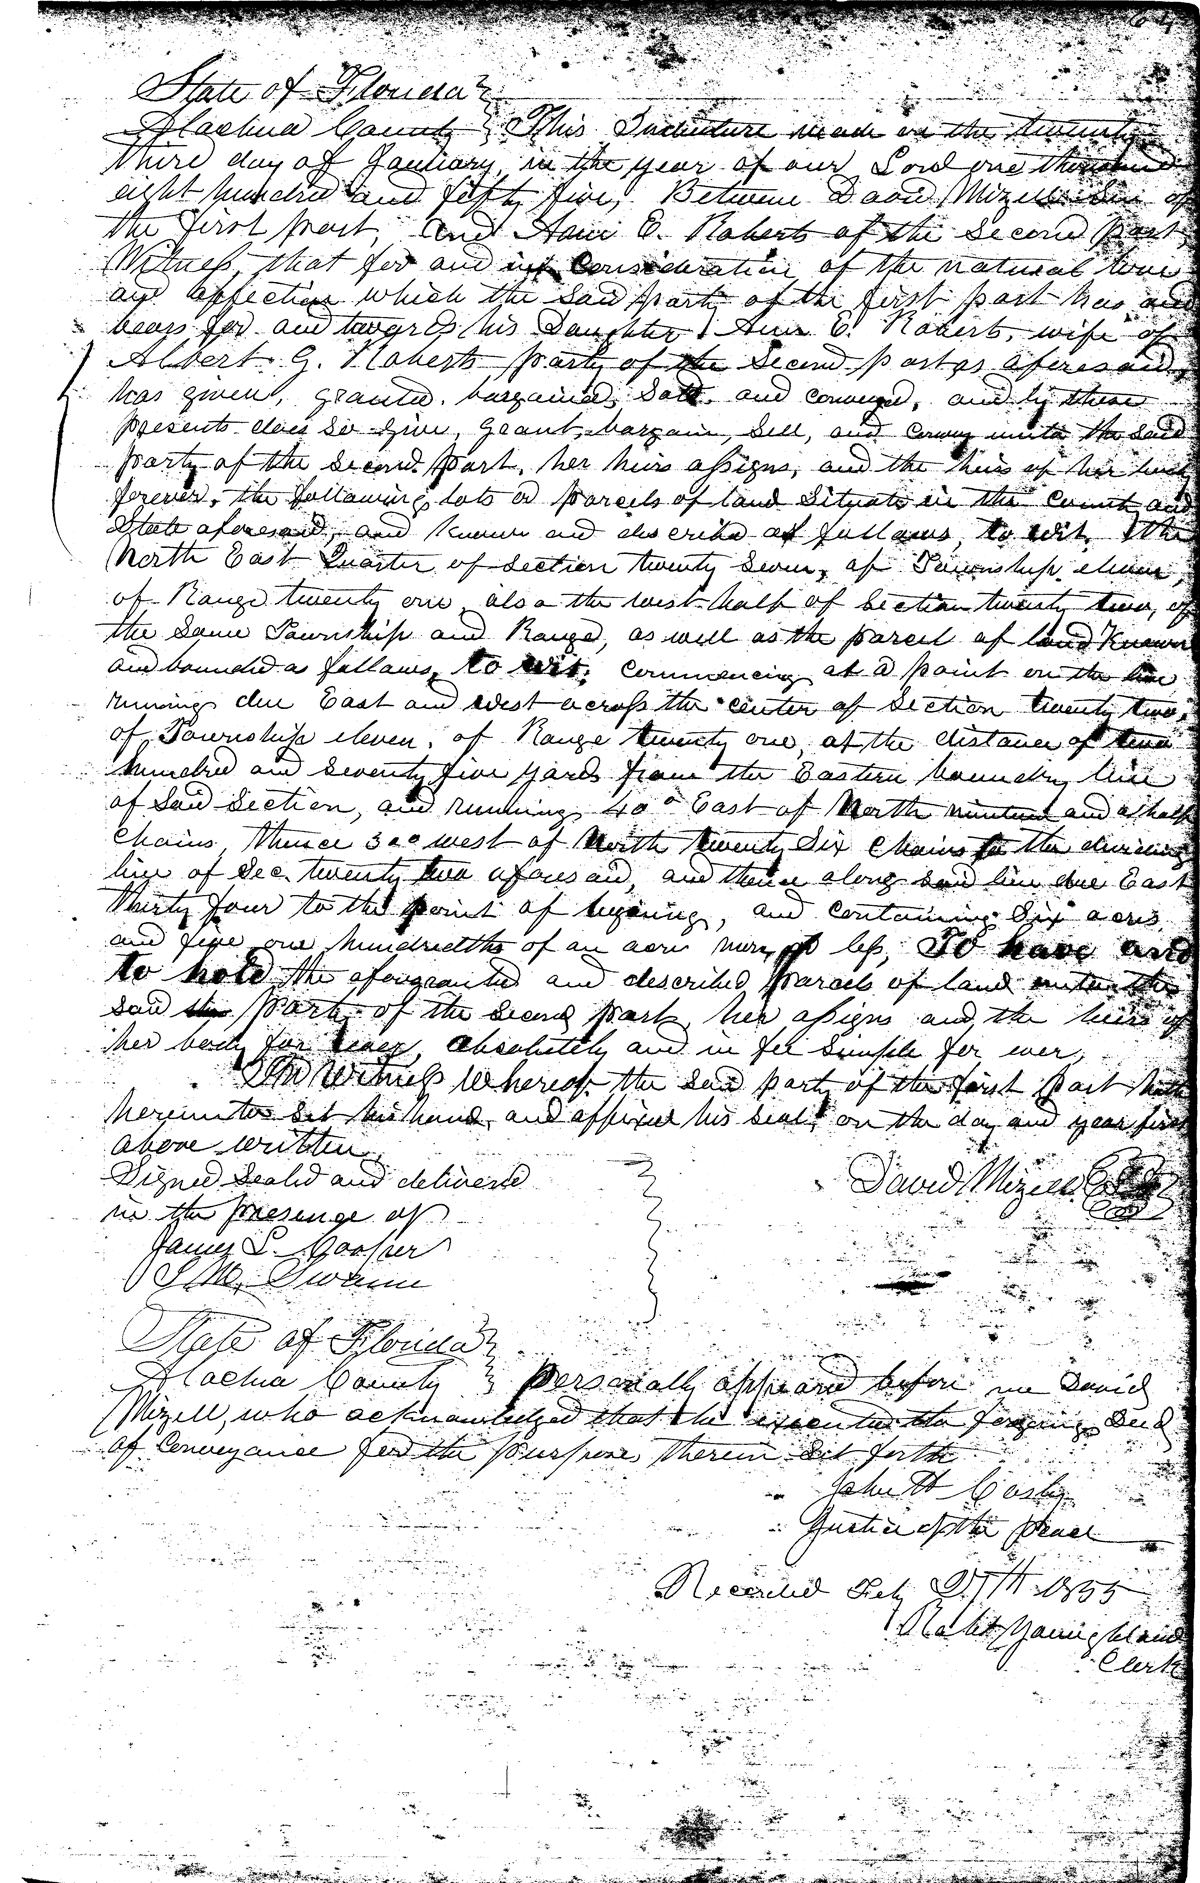 64
State of Florida
Alachua County } This Indenture made on the twenty
third day of January, in the year of our Lord one thousand
eight hundred and fifty five, Between David Mizell Sen of
the first part, and Ann E. Roberts of the Second part,
Witness, that for and in consideration of the natural love
and affection which the said party of the first part has and
bears for and towards his Daughter, Ann E. Roberts, wife of
Albert G. Roberts party of the Second part as aforesaid,
has given, granted, bargained, sold, and conveyed, and by these
presents does so give, grant, bargain, sell, and convey unto the said
party of the second part, her heirs assigns, and the heirs of her body
forever, the following lots or parcels of land situate in the County and
State aforesaid, and known and described as follows, to wit, the
North East Quarter of section twenty seven, of Township eleven,
of Range twenty one, also the west half of section twenty two, of
the same Township and Range, as well as the parcel of land known
and bounded as follows, to wit; commencing at a point on the line
running due East and west across the center of section twenty two,
of Township eleven, of Range twenty one, at the distance of two
hundred and seventy five yards from the Eastern boundry line
of said section, and running 40° East of North nineteen and a half
chains, thence 30° west of North twenty six chains to the dividing
line of Sec. twenty two aforesaid, and thence along said line due East
thirty four to the point of begining, and containing six acres
and five one hundredths of an acre more or less, To have and
to hold the aforgranted and described parcels of land unto the
said party of the second part, her assigns and the heirs of
her body for ever, absolutely and in fee simple for ever,
In Witness Whereof the said party of the first part hath
hereunto set his hand, and affixed his seal, on the day and year first
above written,
Signed Sealed and delivered
in the presenge of
David Mizell
James L. Cooper
S M. Swann
State of Florida
Alachua County } personally appeared before me David
Mizell, who acknowledged that he executed the forgoing Deed
of Conveyance for the purposes therein set forth
John H Cosby
Justice of the peace
Recorded Feb 27th 1855
Robt Younghland
Clerk